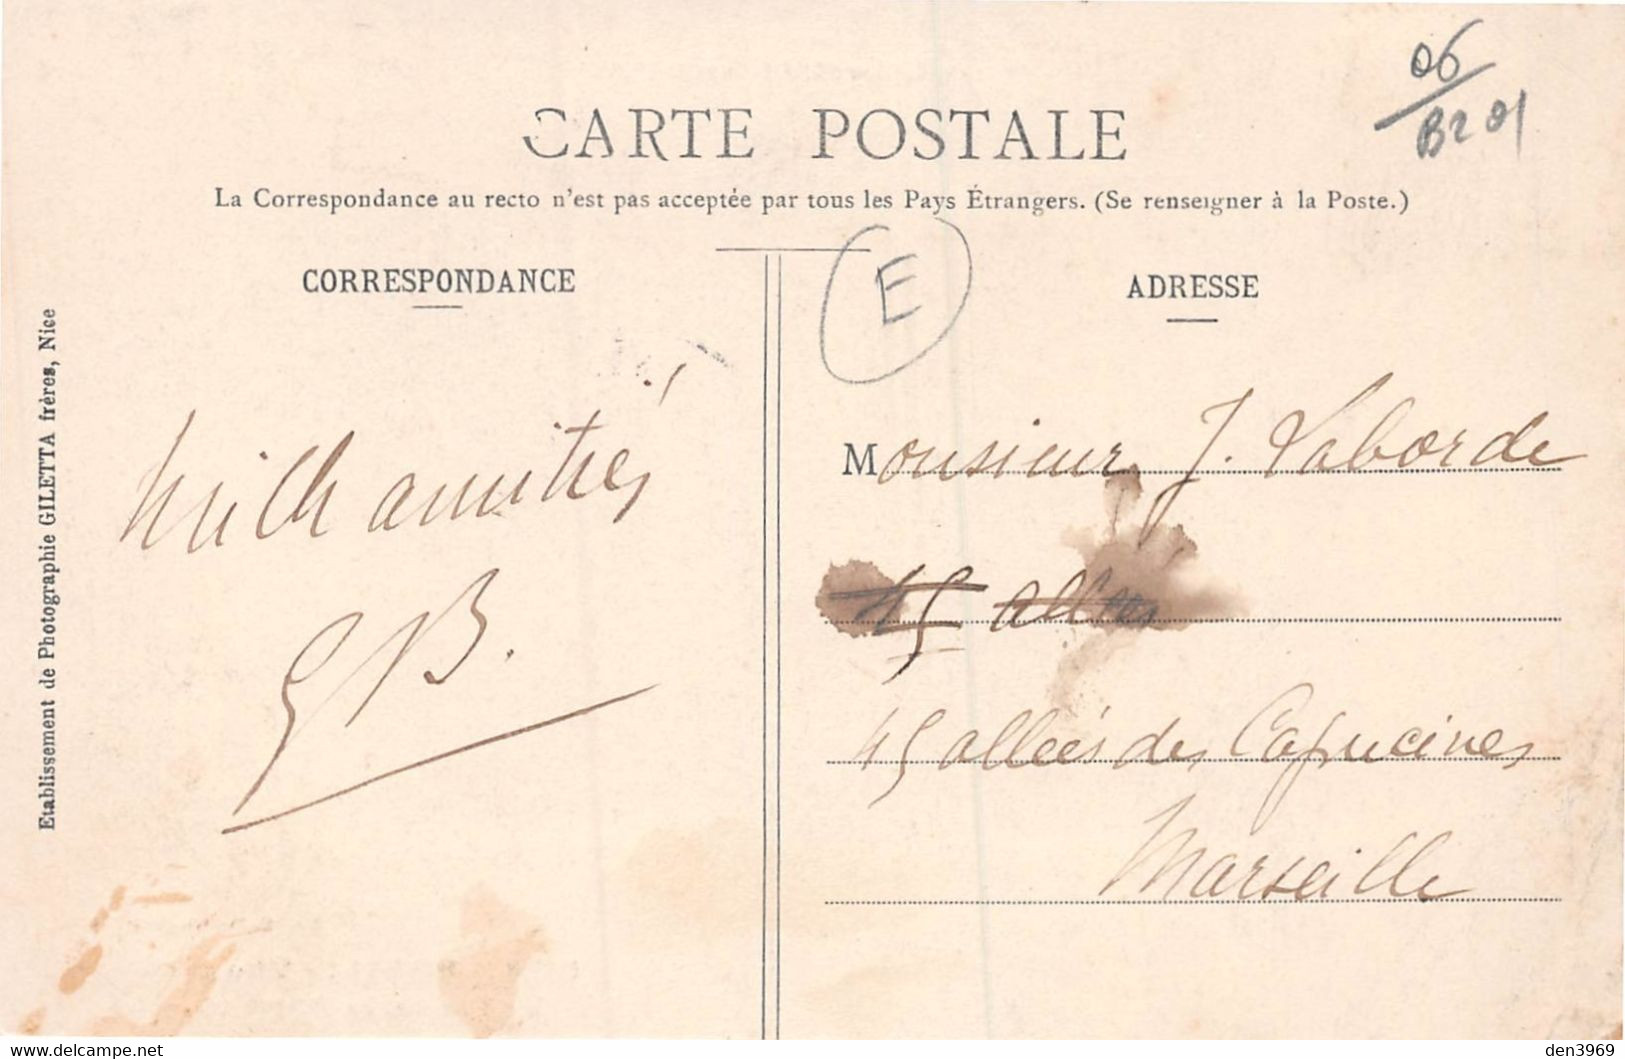 06
B2 01
CARTE POSTALE
La Correspondance au recto n'est pas acceptée par tous les Pays Étrangers. (Se renseigner à la Poste.)
CORRESPONDANCE
Mille amitiés
GB.
Etablissement de Photographie GILETTA frères, Nice
E
ADRESSE
Monsieur J. Laborde
45 allées
45 allées des Capucines
Marseille
www.delcampe.net
den3969